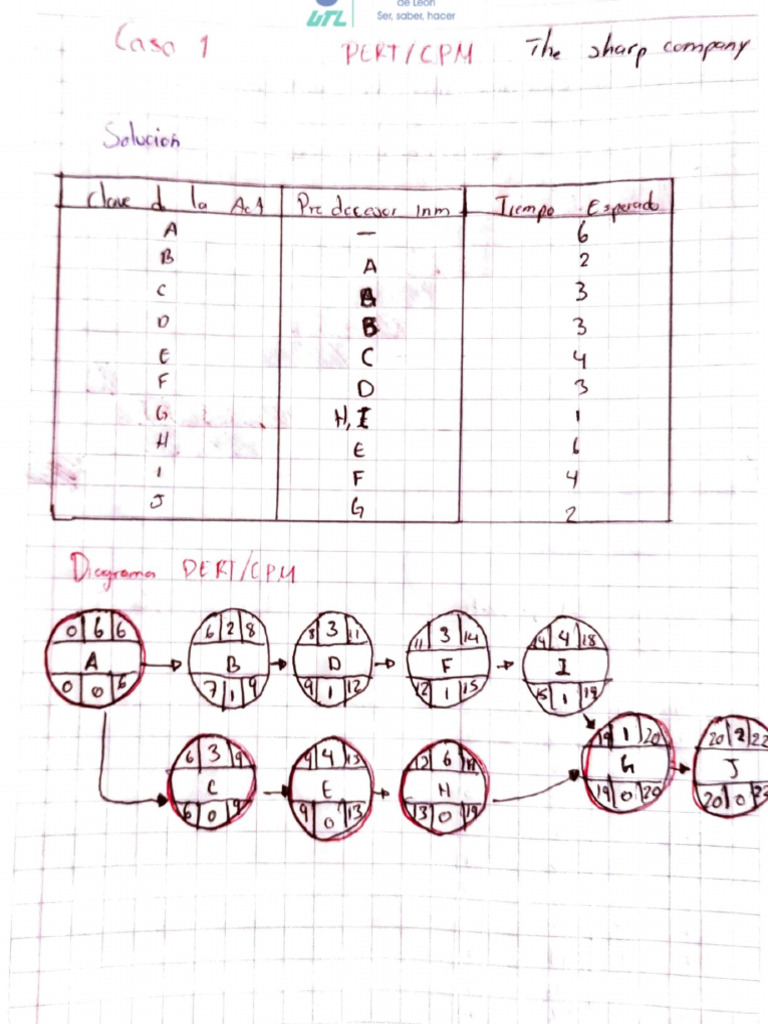 UTL
de León
Ser, saber, hacer
Caso 1 PERT/CPM The sharp company
Solucion
Clave d la Act Predecesor inm Tiempo Esperado
A — 6
B A 2
C A 3
D B 3
E C 4
F D 3
G H, I 1
H E 6
I F 4
J G 2
Diagrama PERT/CPM
0 6 6 6 2 8 8 3 11 11 3 14 14 4 18
A B D F I
0 0 6 7 1 9 9 1 12 12 1 15 15 1 19
6 3 9 9 4 13 13 6 19 19 1 20 20 2 22
C E H G J
6 0 9 9 0 13 13 0 19 19 0 20 20 0 22